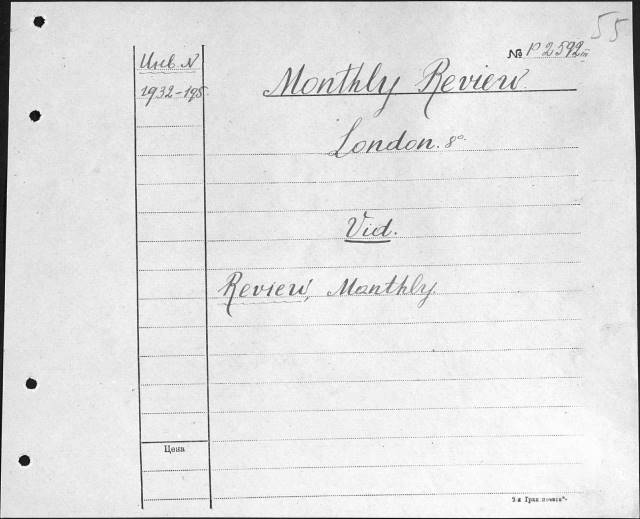 55
№ P 2592 III
Инв. N
1932-195
Monthly Review
London. 8°.
Vid.
Review, Monthly.
Цена